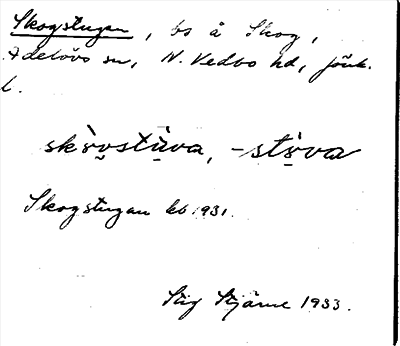 Skogstugan, bs å Skog,
Adelövs sn, N. Vedbo hd, Jönk.
l.
skòu̯stù̱va, -stò̱va
Skogstugan kb 1931.
Stig Stjärne 1933.